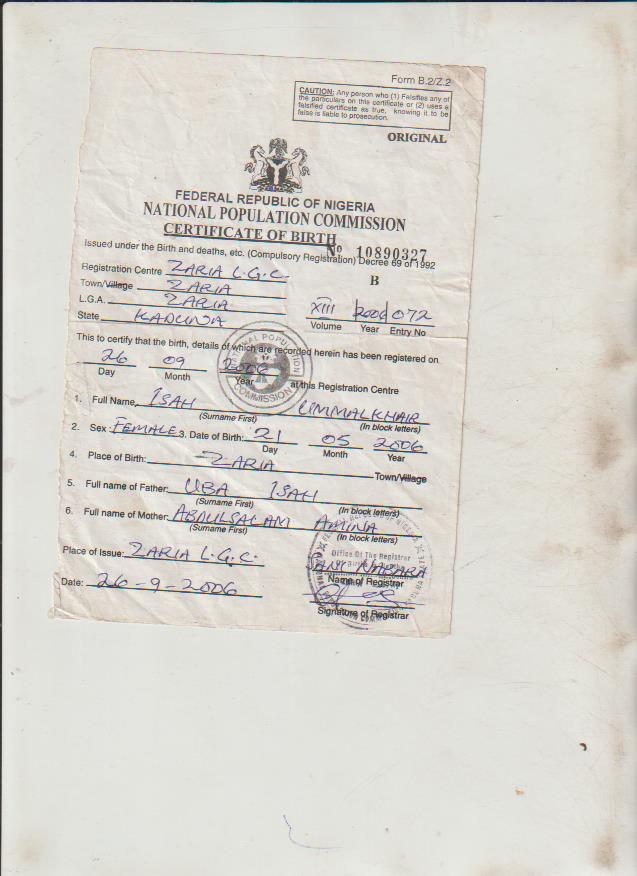 Form B.2/Z.2
CAUTION: Any person who (1) Falsifies any of
the particulars on this certificate or (2) uses a
falsified certificate as true, knowing it to be
false is liable to prosecution.
ORIGINAL
FEDERAL REPUBLIC OF NIGERIA
NATIONAL POPULATION COMMISSION
CERTIFICATE OF BIRTH
Nº 10890327
Issued under the Birth and deaths, etc. (Compulsory Registration) Decree 69 of 1992
B
Registration Centre ZARIA L.G.C.
Town/Village ZARIA
L.G.A. ZARIA
State KADUNA
XIII 2006 072
Volume Year Entry No
This to certify that the birth, details of which are recorded herein has been registered on
26 09 2006
Day Month Year at this Registration Centre
NATIONAL POPULATION COMMISSION
1. Full Name ISAH UMMALKHAIR
(Surname First) (In block letters)
2. Sex: FEMALE 3. Date of Birth: 21 05 2006
Day Month Year
4. Place of Birth: ZARIA Town/Village
5. Full name of Father: UBA ISAH
(Surname First) (In block letters)
6. Full name of Mother: ABDULSALAM AMINA
(Surname First) (In block letters)
Place of Issue: ZARIA L.G.C.
Office Of The Registrar
SANI
Name of Registrar
Date: 26-9-2006
Signature of Registrar